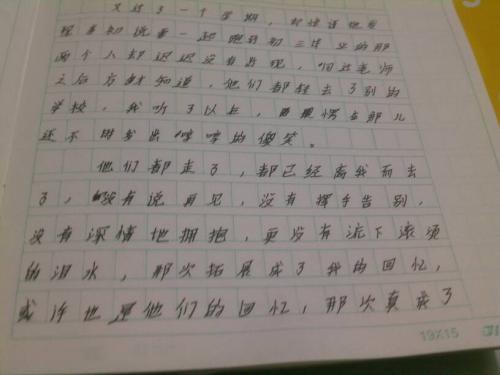 又过了一个学期，却惊讶地发
现当初说要一起跑到初三毕业的那
两个人却迟迟没有出现，问过老师
之后方才知道，他们都转去了别的
学校，我听了以后，愣在那儿
还不时发出哼哼的傻笑。
他们都走了，都已经离我而去
了，没有说再见，没有挥手告别，
没有深情地拥抱，更没有流下滚烫
的泪水，那次拓展成了我的回忆，
或许也是他们的回忆，那次真成了
19X15